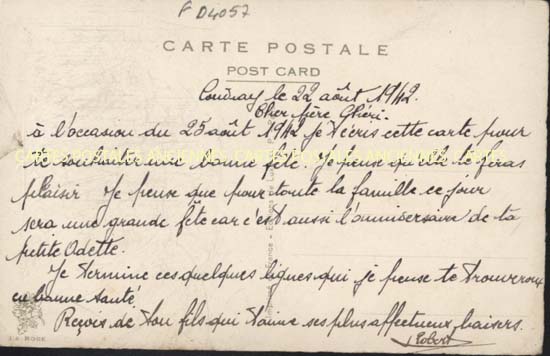 F D4057
CARTE POSTALE
POST CARD
Coudray le 22 août 1942.
Cher Père Chéri.
à l'occasion du 25 août 1942 je t'écris cette carte pour
te souhaiter une bonne fête. Je pense qu'elle te feras
plaisir Je pense que pour toute la famille ce jour
sera une grande fête car c'est aussi l'anniversaire de ta
petite Odette.
Je termine ces quelques lignes qui, je pense te trouveront
en bonne santé
Reçois de ton fils qui t'aime ses plus affectueux baisers.
Robert
LA ROSE